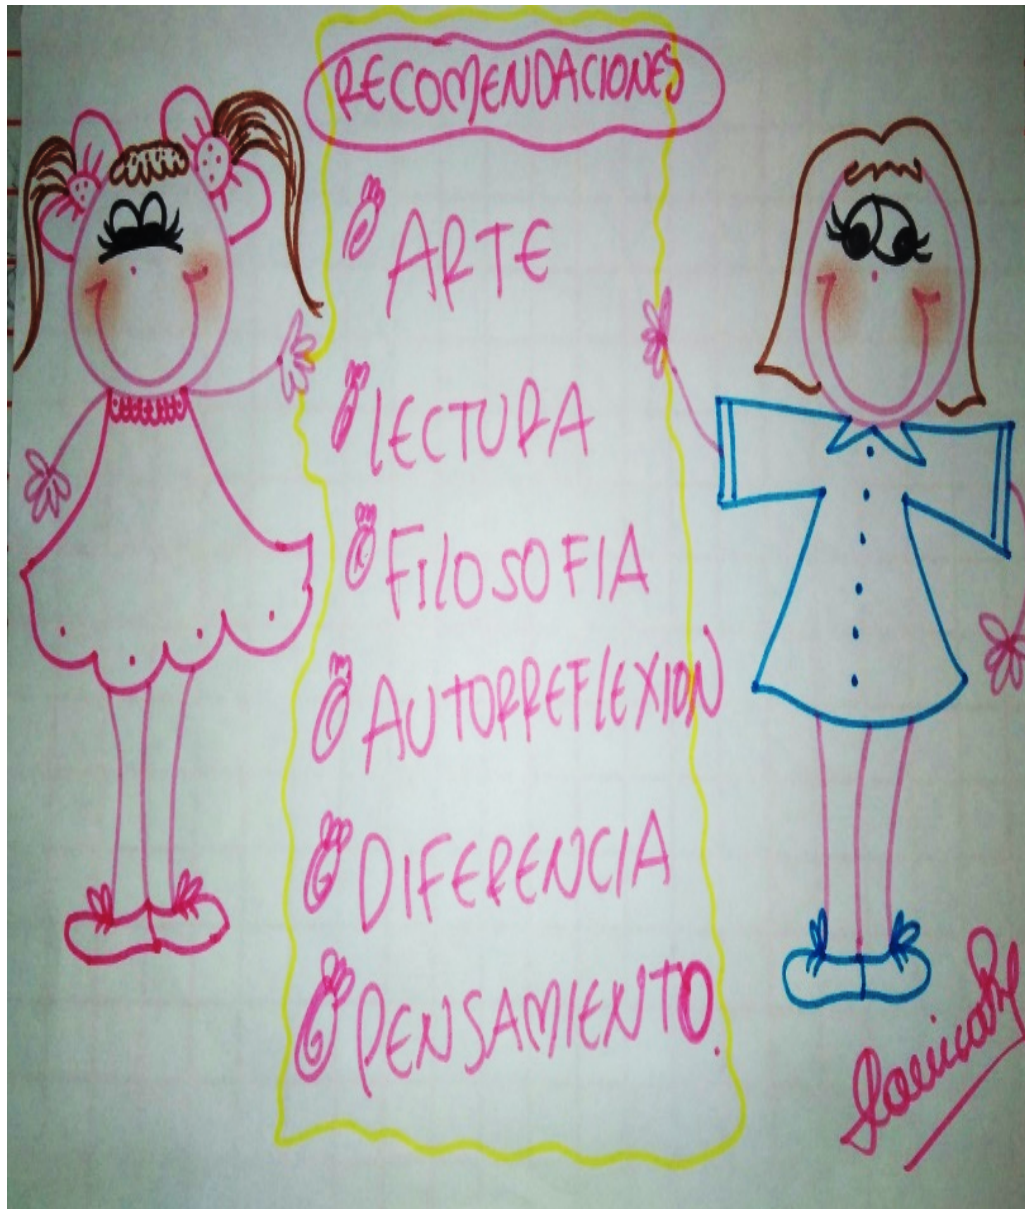 RECOMENDACIONES
ARTE
LECTURA
FILOSOFIA
AUTORREFLEXION
DIFERENCIA
PENSAMIENTO.